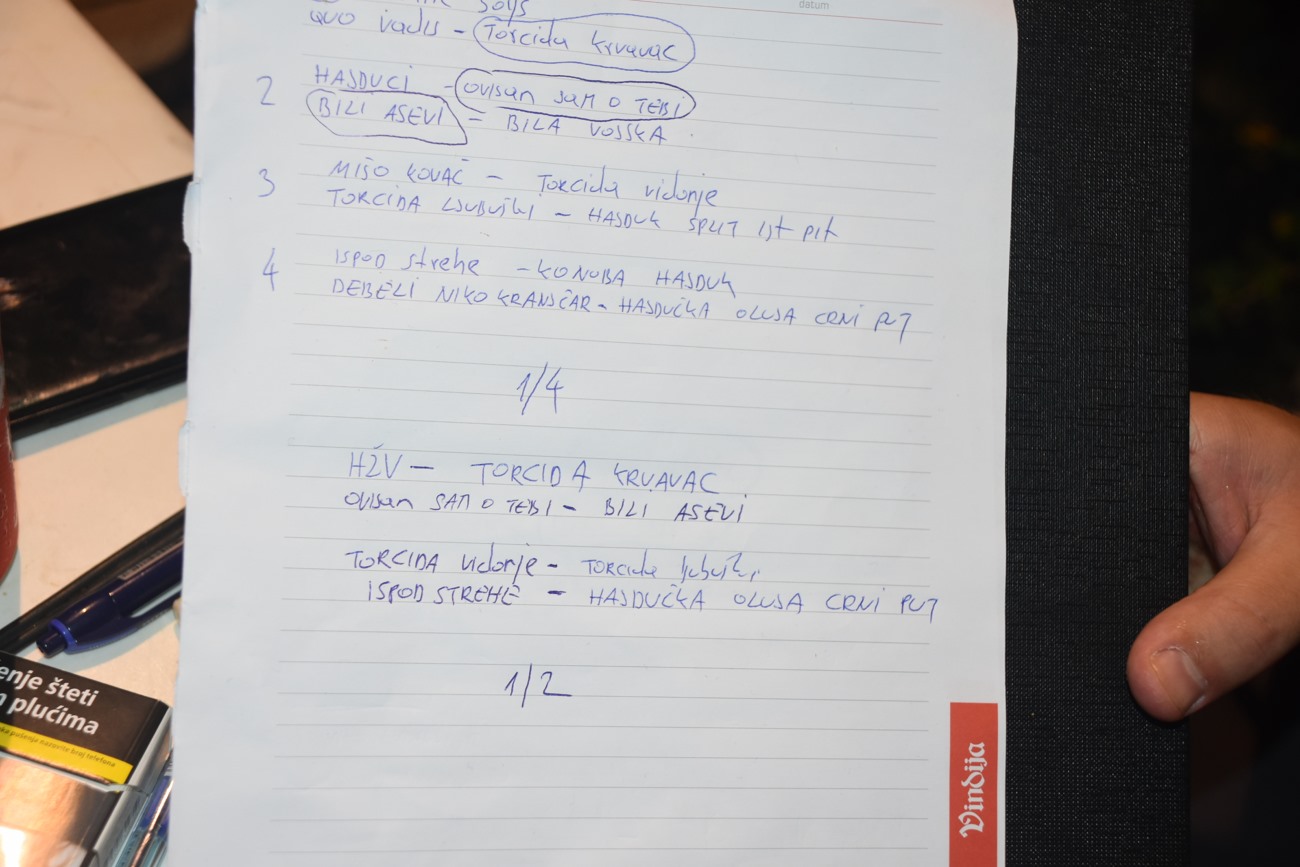 datum
SOYS
QUO vadis - Torcida Krvavac
2 HAJDUCI - OVISAN SAM O TEBI
BILI ASEVI = BILA VOJSKA
3 MIŠO KOVAČ - TORCIDA vidonje
TORCIDA LJUBUŠKI - HAJDUK SPLIT IST PIT
4 ISPOD strehe - KONOBA HAJDUK
DEBELI NIKO KRANJČAR - HAJDUČKA OLUJA CRNI PUT
1/4
HŽV - TORCIDA KRVAVAC
OVISAN SAM O TEBI - BILI ASEVI
TORCIDA vidonje - TORCIDA ljubuški
ISPOD STREHE - HAJDUČKA OLUJA CRNI PUT
1/2
enje šteti
plućima
Vindija